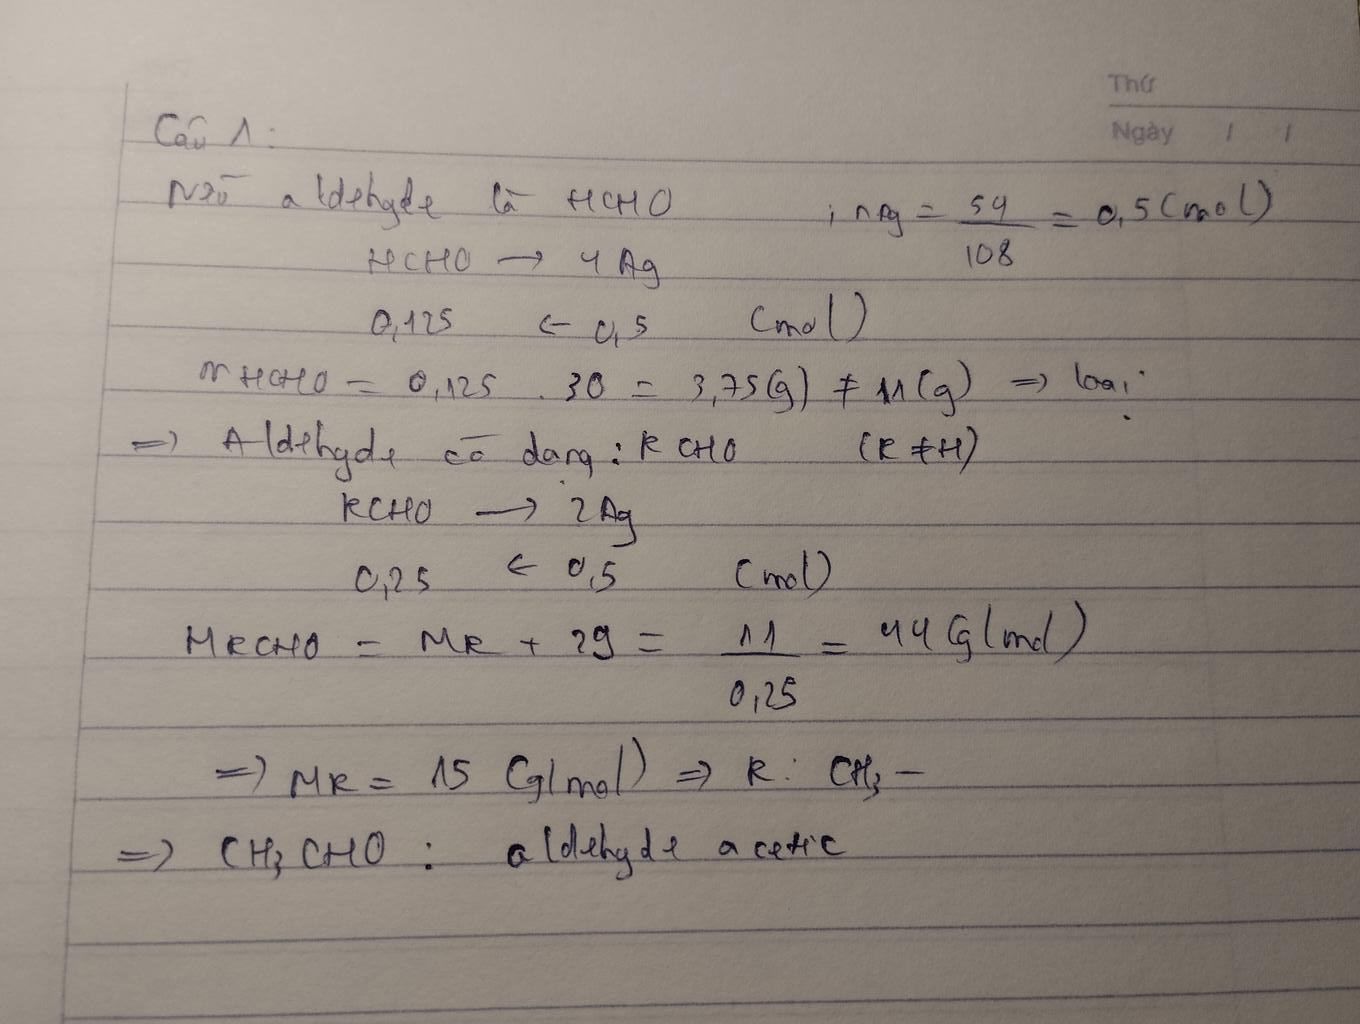 Thứ
Ngày / /
Câu 1:
Nếu aldehyde là HCHO ; nAg = 54/108 = 0,5 (mol)
HCHO → 4 Ag
0,125 ← 0,5 (mol)
mHCHO = 0,125 . 30 = 3,75 (g) ≠ 11 (g) => loại
=> Aldehyde có dạng : RCHO (R ≠ H)
RCHO → 2 Ag
0,25 ← 0,5 (mol)
MRCHO = MR + 29 = 11/0,25 = 44 (g/mol)
=> MR = 15 (g/mol) => R : CH₃ –
=> CH₃CHO : aldehyde acetic